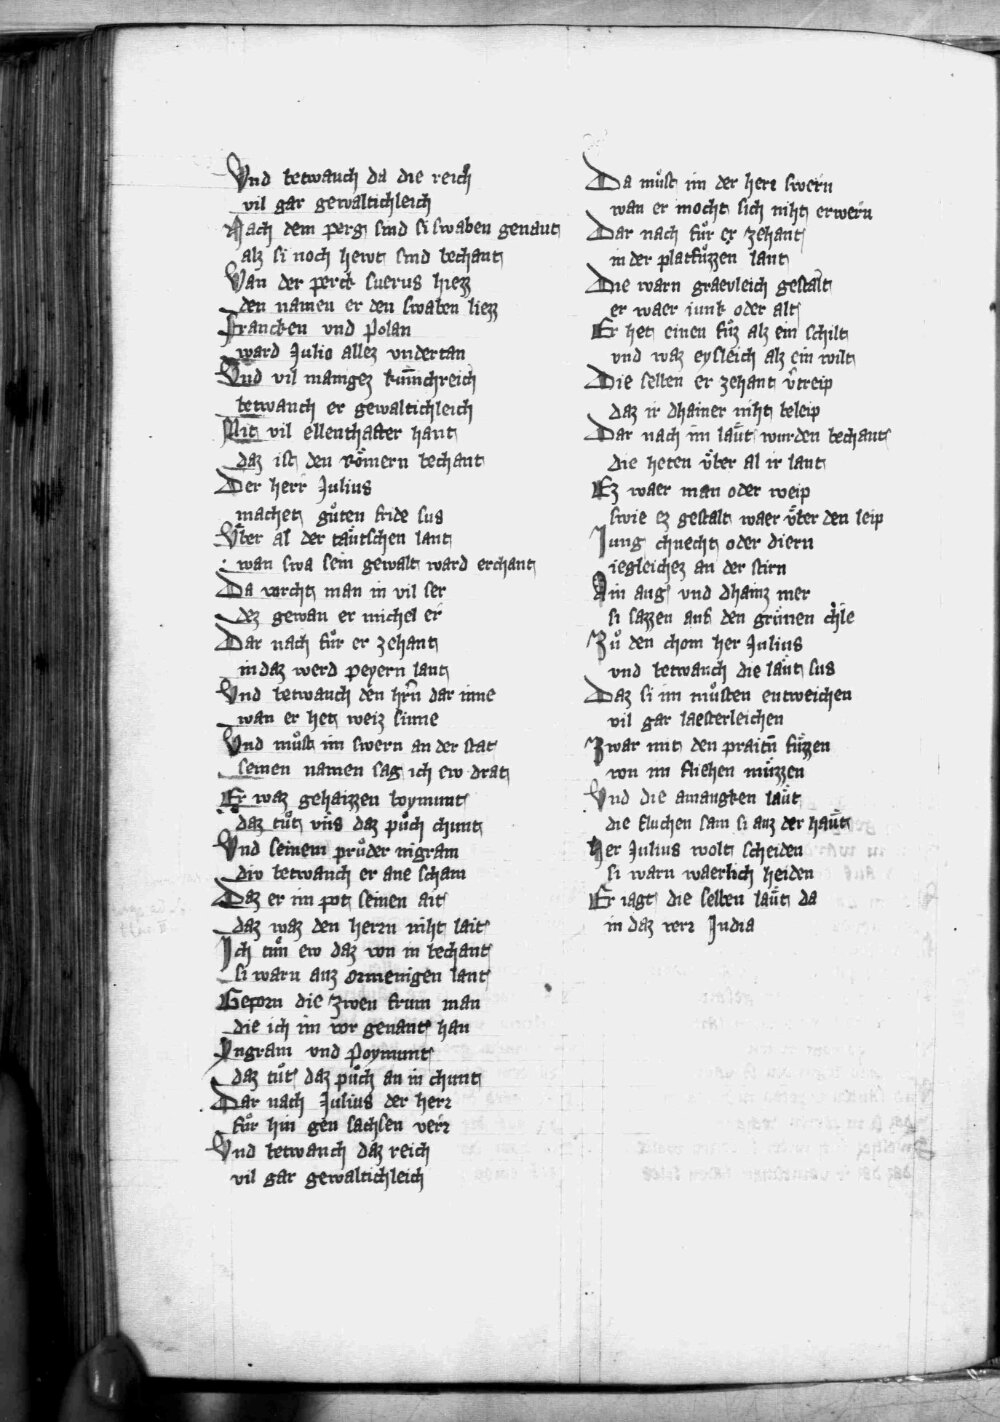 Vnd betwanch da die reich
vil gar gewaltichleich
Nach dem perg sind si swaben genant
alz si noch hewt sind bechant
Van der perck suerus hiezz
den namen er den swaben liezz
Francken vnd Polan
ward Julio allez vndertan
Vnd vil manigez kunichreich
betwanch er gewaltichleich
Mit vil ellenthafter hant
daz ist den Römern bechant
Der herr Julius
machet gůten fride sus
Vber al der taütschen lant
wan swa sein gewalt ward erchant
Da vorcht man in vil ser
dez gewan er michel er
Dar nach fůr er zehant
in daz werd peyern lant
Vnd betwanch den hrñ dar inne
wan er het weiz sinne
Vnd můst im swern an der stat
seinen namen sag ich ew drat
Er waz gehaizzen boymunt
daz tůt vns daz půch chunt
Vnd seinem průder ingram
div betwanch er ane scham
Daz er im pot seinen ait
daz waz den herrn niht lait
Ich tůn ew daz von in bechant
si warn auz ormenigen lant
Geporn die zwen frum man
die ich im vor genant han
Yngram vnd poymunt
daz tůt daz půch an in chunt
Dar nach Julius der herr
fůr hin gen sachsen verr
Vnd betwanch daz reich
vil gar gewaltichleich
Da můst im der herr swern
wan er mocht sich niht erwern
Dar nach fůr er zehant
in der platfůzzen lant
Die warn graevleich gestalt
er waer iunk oder alt
Er het einen fůz alz ein schilt
vnd waz eysleich alz ein wilt
Die selben er zehant v̂treip
daz ir dhainer niht beleip
Dar nach im laüt wurden bechant
die heten vber al ir lant
Ez waer man oder weip
swie ez gestalt waer vber den leip
Jung chnecht oder diern
iegleichez an der stirn
Ain aug vnd dhainz mer
si sazzen auf den grünen chle
Zů den chom her Julius
vnd betwanch die laüt sus
Daz si im můsten entweichen
vil gar laesterleichen
Zwar mit den praitñ fůzzen
von im fliehen müzzen
Vnd die ainaugken laüt
die fluchen sam si auz der haüt
Her Julius wolt scheiden
si warn waerlich heiden
Er iagt die selben laüt da
in daz verr India